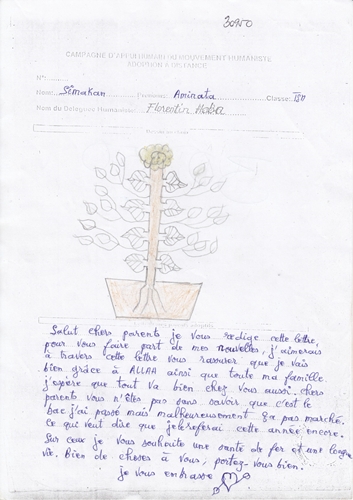 30950
CAMPAGNE D'APPUI HUMAIN DU MOUVEMENT HUMANISTE
ADOPTION A DISTANCE
N°:
Nom: Simakan Prénom: Aminata Classe:
Nom du Délégués Humaniste: Florentin
Salut chers parents je vous rédige cette lettre,
pour vous faire part de mes nouvelles, j'aimerais
à travers cette lettre vous rassurer que je vais
bien grâce à ALLAA ainsi que toute ma famille
j'espère que tout va bien chez vous aussi. chers
parents vous n'êtes pas sans savoir que c'est le
bac j'ai passé mais malheureusement ça pas marché.
ce qui veut dire que je le referai cette année encore.
Sur ceux je vous souhaite une santé de fer et une longue
vie. Bien de choses à vous, portez-vous bien.
je vous embrasse